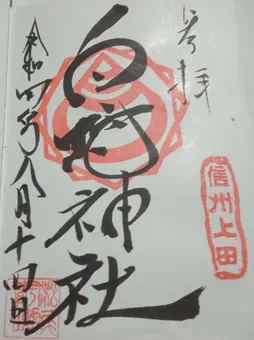 奉拝
信州上田
白蛇神社
令和四年八月十四日